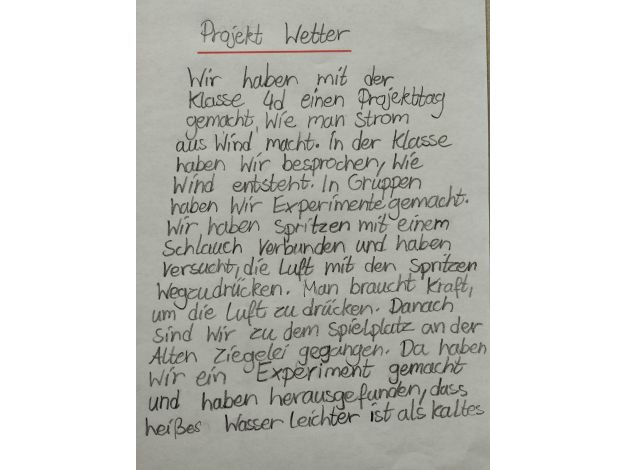 Projekt Wetter
Wir haben mit der
Klasse 4d einen Projekttag
gemacht, Wie man Strom
aus Wind macht. In der Klasse
haben Wir besprochen, Wie
Wind entsteht. In Gruppen
haben Wir Experimente gemacht.
Wir haben Spritzen mit einem
Schlauch verbunden und haben
versucht, die Luft mit den Spritzen
Wegzudrücken. Man braucht Kraft,
um die Luft zu drücken. Danach
Sind Wir zu dem Spielplatz an der
Alten Ziegelei gegangen. Da haben
Wir ein Experiment gemacht
und haben herausgefunden, dass
heißes Wasser Leichter ist als kaltes